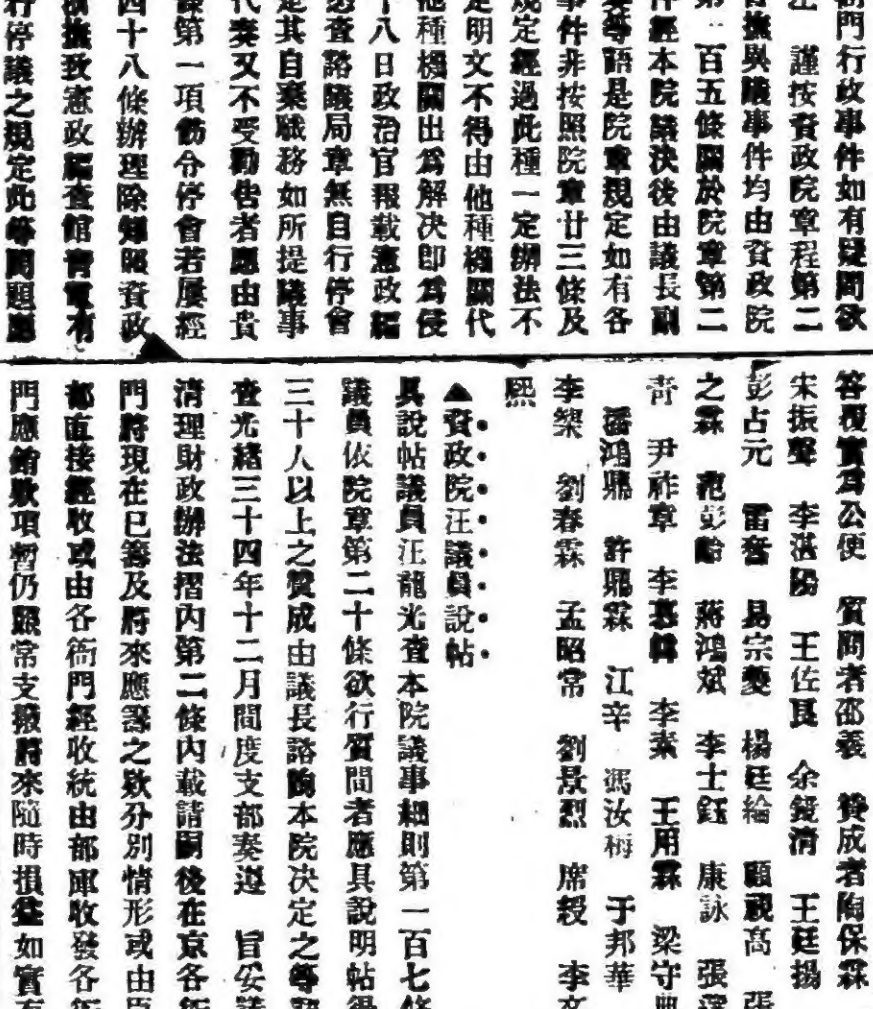 衙門行政事件如有疑問欲
謹按資政院章程第二
督撫與議事件均由資政院
第一百五條關於院章第二
件經本院議決後由議長副
等語是院章規定如有各
事件非按照院章廿三條及
規定經過此種一定辦法不
定明文不得由他種機關代
他種機關出爲解決即爲侵
十八日政治官報載憲政編
查諮議局章無自行停會
是其自棄職務如所提議事
代奏又不受勸告者應由貴
條第一項飭令停會若屢經
四十八條辦理除知照資政
撫致憲政編查館電有
行停議之規定此等問題應
答覆實爲公便 質問者邵羲 贊成者陶保霖
宋振聲 李湛陽 王佐良 余鏡清 王廷揚
彭占元 雷奮 易宗夔 楊廷綸 顧視高 張
之霖 范彭齡 蔣鴻斌 李士鈺 康詠 張
尹祚章 李慕韓 李素 王用霖 梁守典
潘鴻鼎 許鼎霖 江辛 馮汝梅 于邦華
李榘 劉春霖 孟昭常 劉景烈 席綬 李文
熙
▲資政院汪議員說帖
具說帖議員汪龍光查本院議事細則第一百七條
議員依院章第二十條欲行質問者應具說明帖得
三十人以上之贊成由議長諮詢本院決定之等語
查光緒三十四年十二月間度支部奏遵 旨妥議
清理財政辦法摺內第二條內載請嗣後在京各衙
門將現在已籌及將來應籌之欵分別情形或由臣
部直接經收或由各衙門經收統由部庫收發各衙
門應銷欵項暫仍照常支撥將來隨時損益如實有